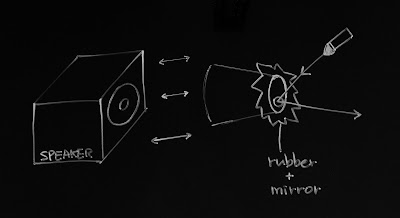 SPEAKER
rubber
+
mirror